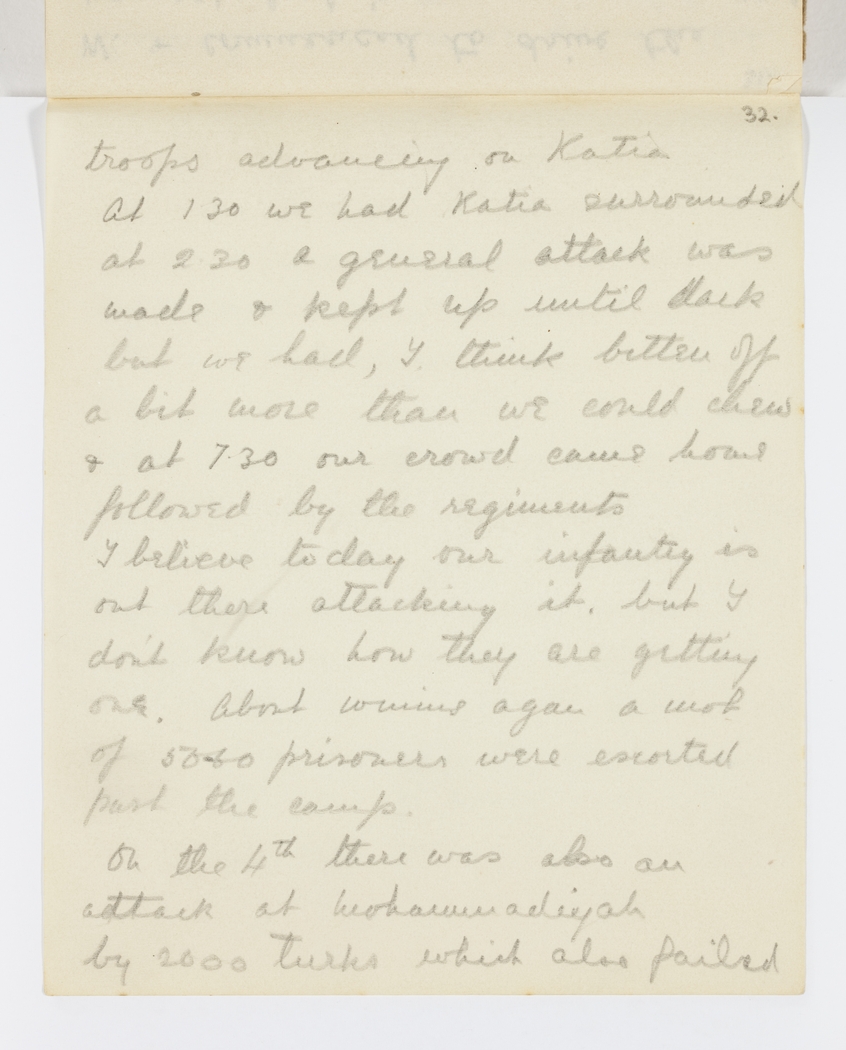 32.
troops advancing on Katia
At 1 30 we had Katia surrounded
at 2.30 a general attack was
made & kept up until dark
but we had, I. think bitten off
a bit more than we could chew
& at 7.30 our crowd came home
followed by the regiments
I believe today our infantry is
out there attacking it. but I
don't know how they are getting
one. About agan a mob
of 50-60 prisoners were escorted
past the camp.
On the 4th there was also an
attack at Mohammadiyah
by 2000 Turks which also failed